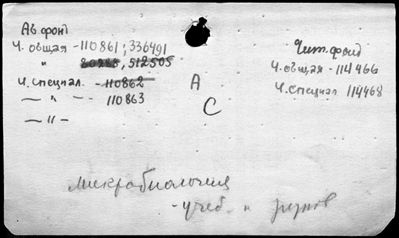 Ав. фонд
Ч. общая - 110861; 336491
" 80288, 512505
Ч. специал. - 110862
— " — - 110863
— " —
А
С
Чит. фонд
Ч. общая - 114466
Ч. специал 114468
микробиология
- учеб. и